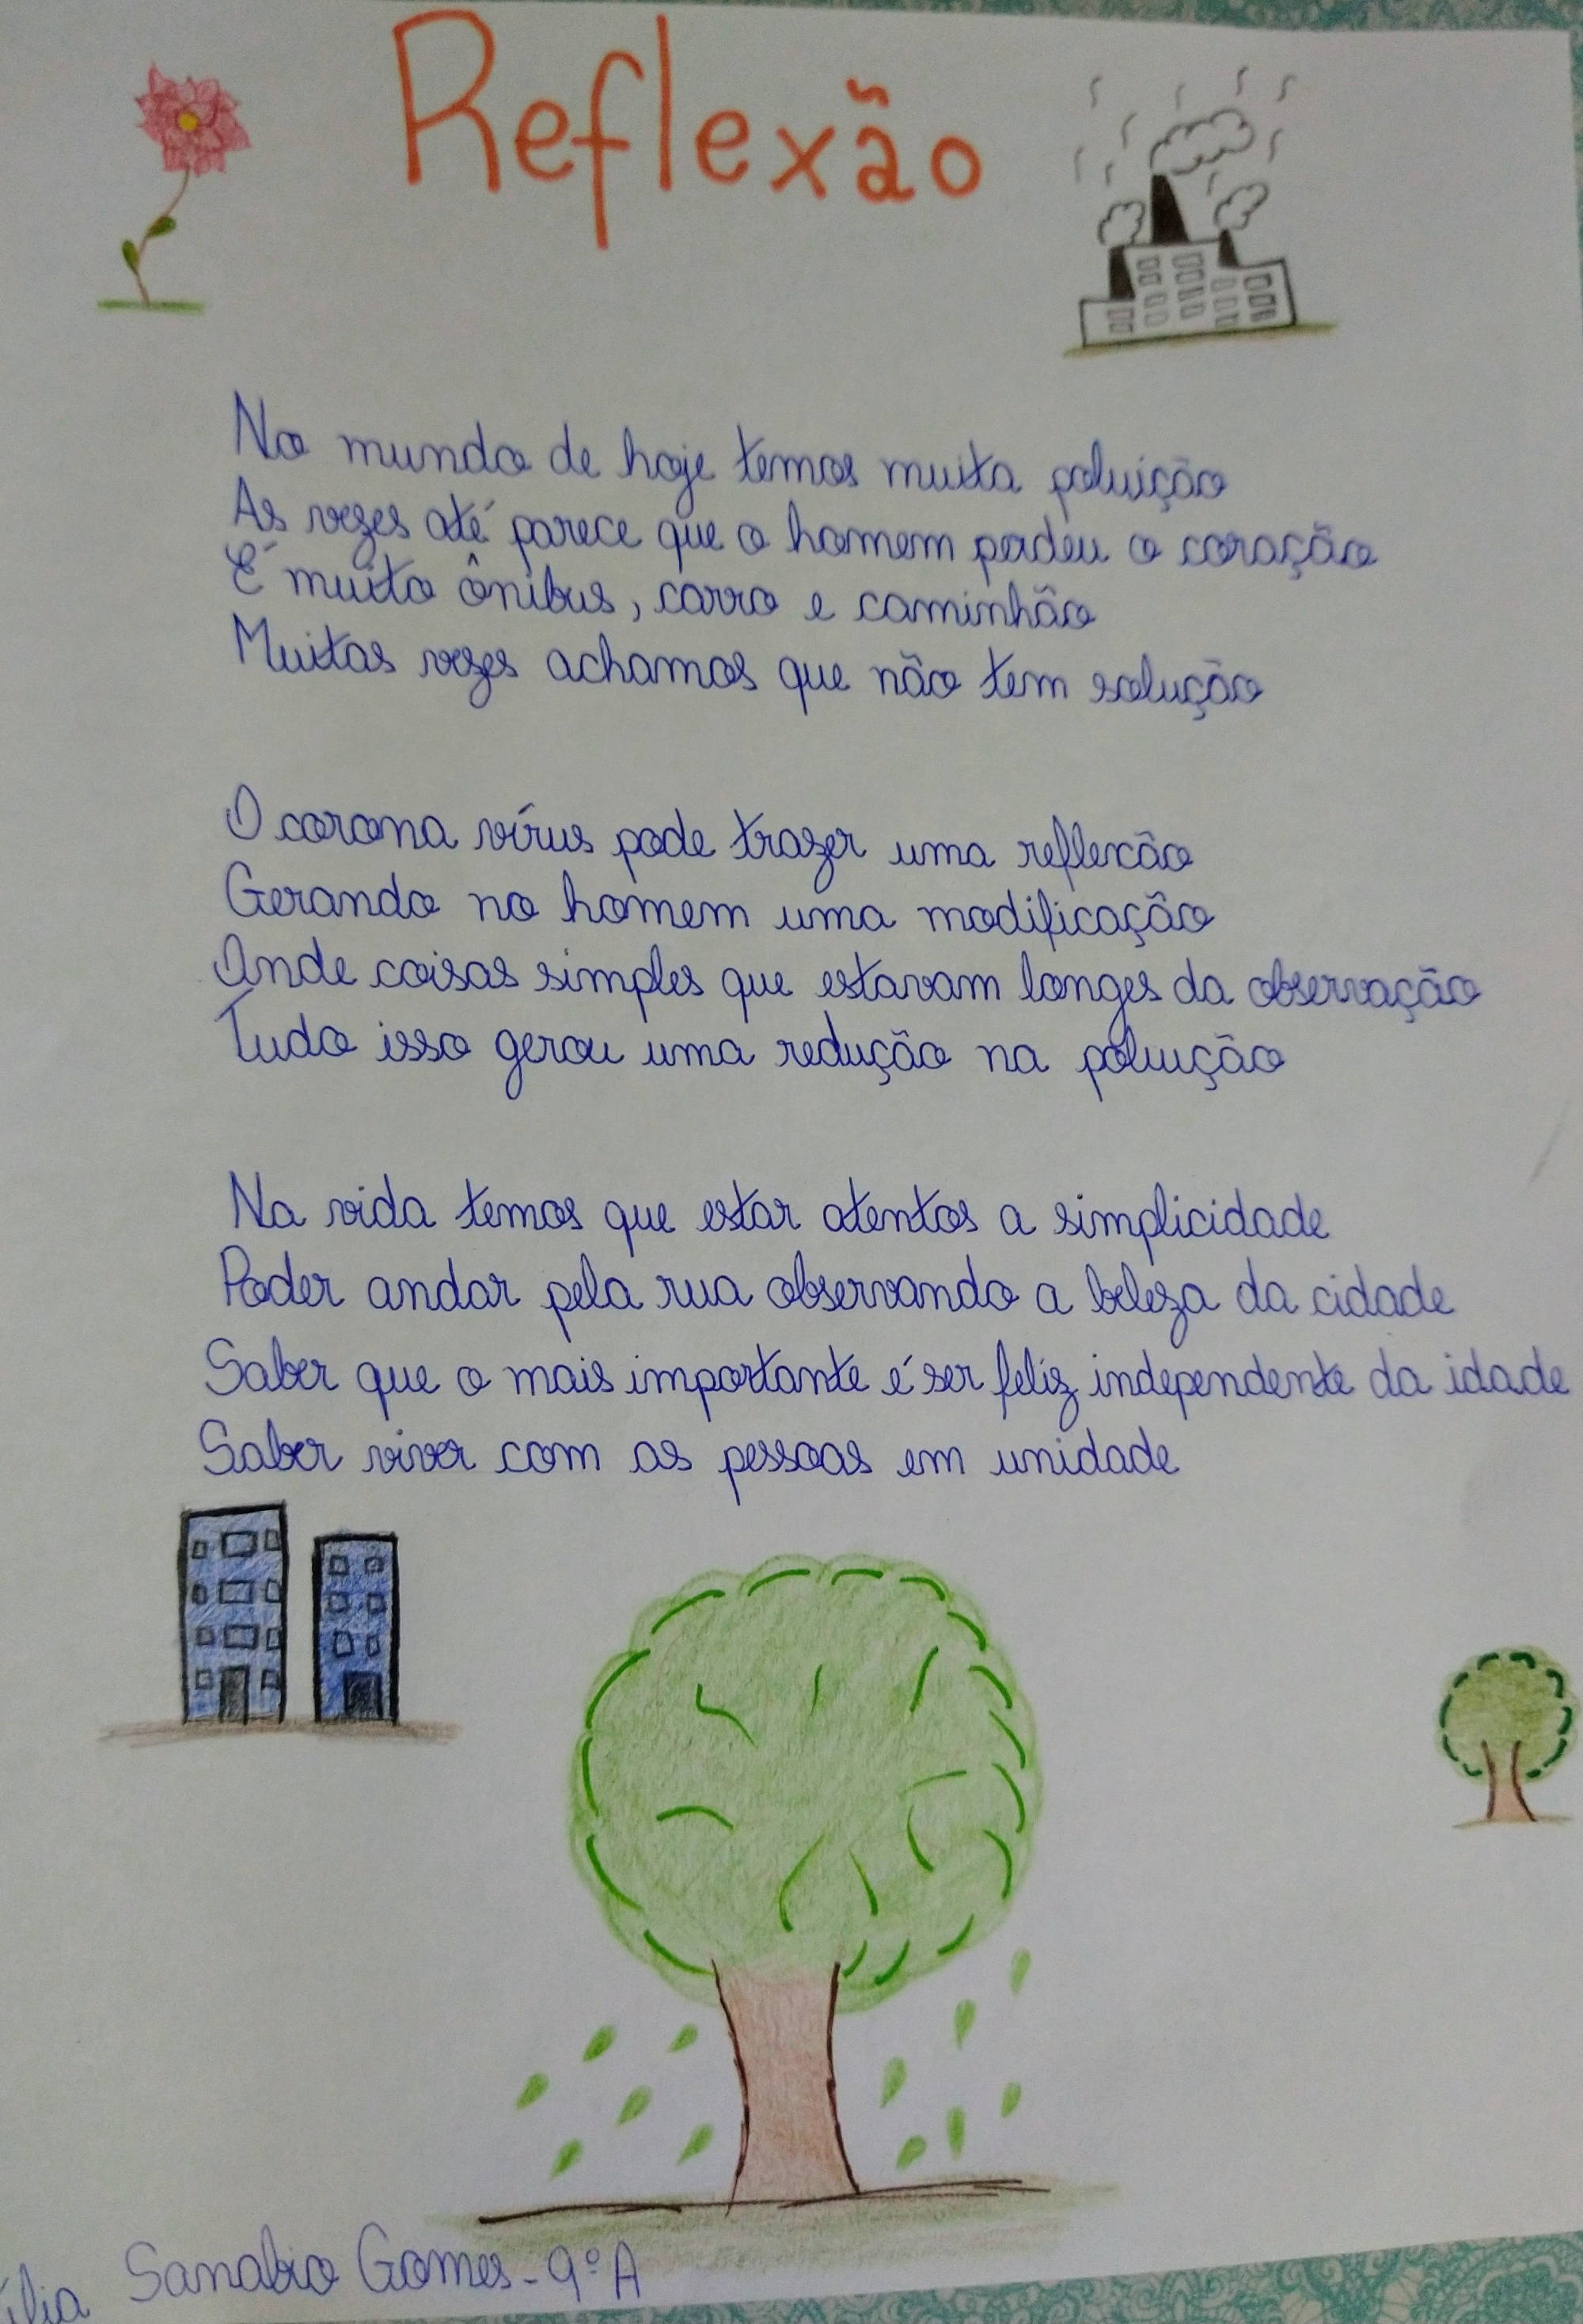 Reflexão
No mundo de hoje temos muita poluição
As vezes até parece que o homem perdeu o coração
É muito ônibus, carro e caminhão
Muitas vezes achamos que não tem solução
O corona vírus pode trazer uma reflexão
Gerando no homem uma modificação
Onde coisas simples que estavam longes da observação
Tudo isso gerou uma redução na poluição
Na vida temos que estar atentos a simplicidade
Poder andar pela rua observando a beleza da cidade
Saber que o mais importante é ser feliz independente da idade
Saber viver com as pessoas em unidade
Sanabio Gomes - 9º A